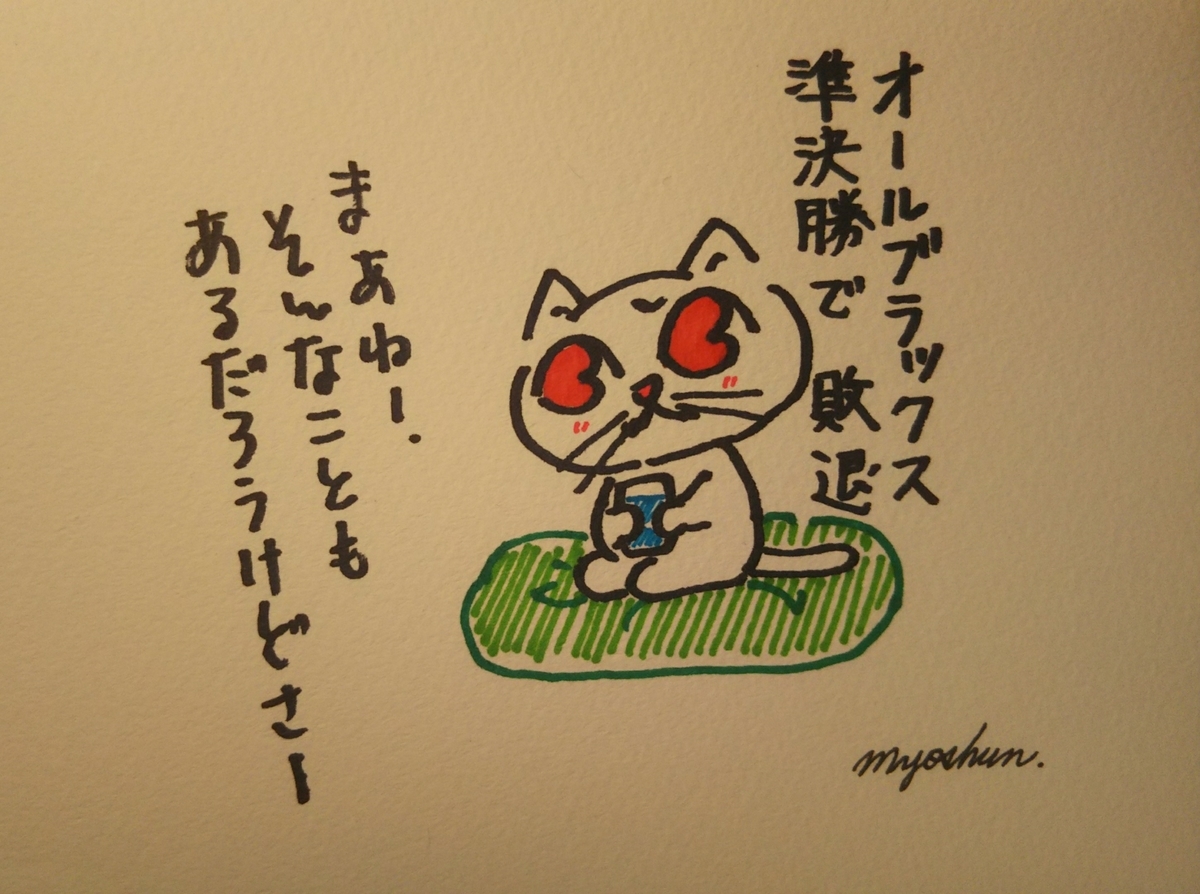 オールブラックス
準決勝で敗退
まぁねー.
そんなことも
あるだろうけどさー
myoshun.